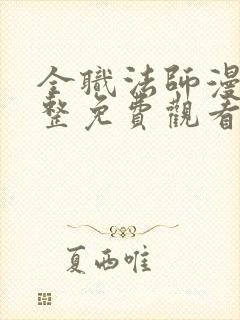 全職法師漫
整免費觀看
夏西唯